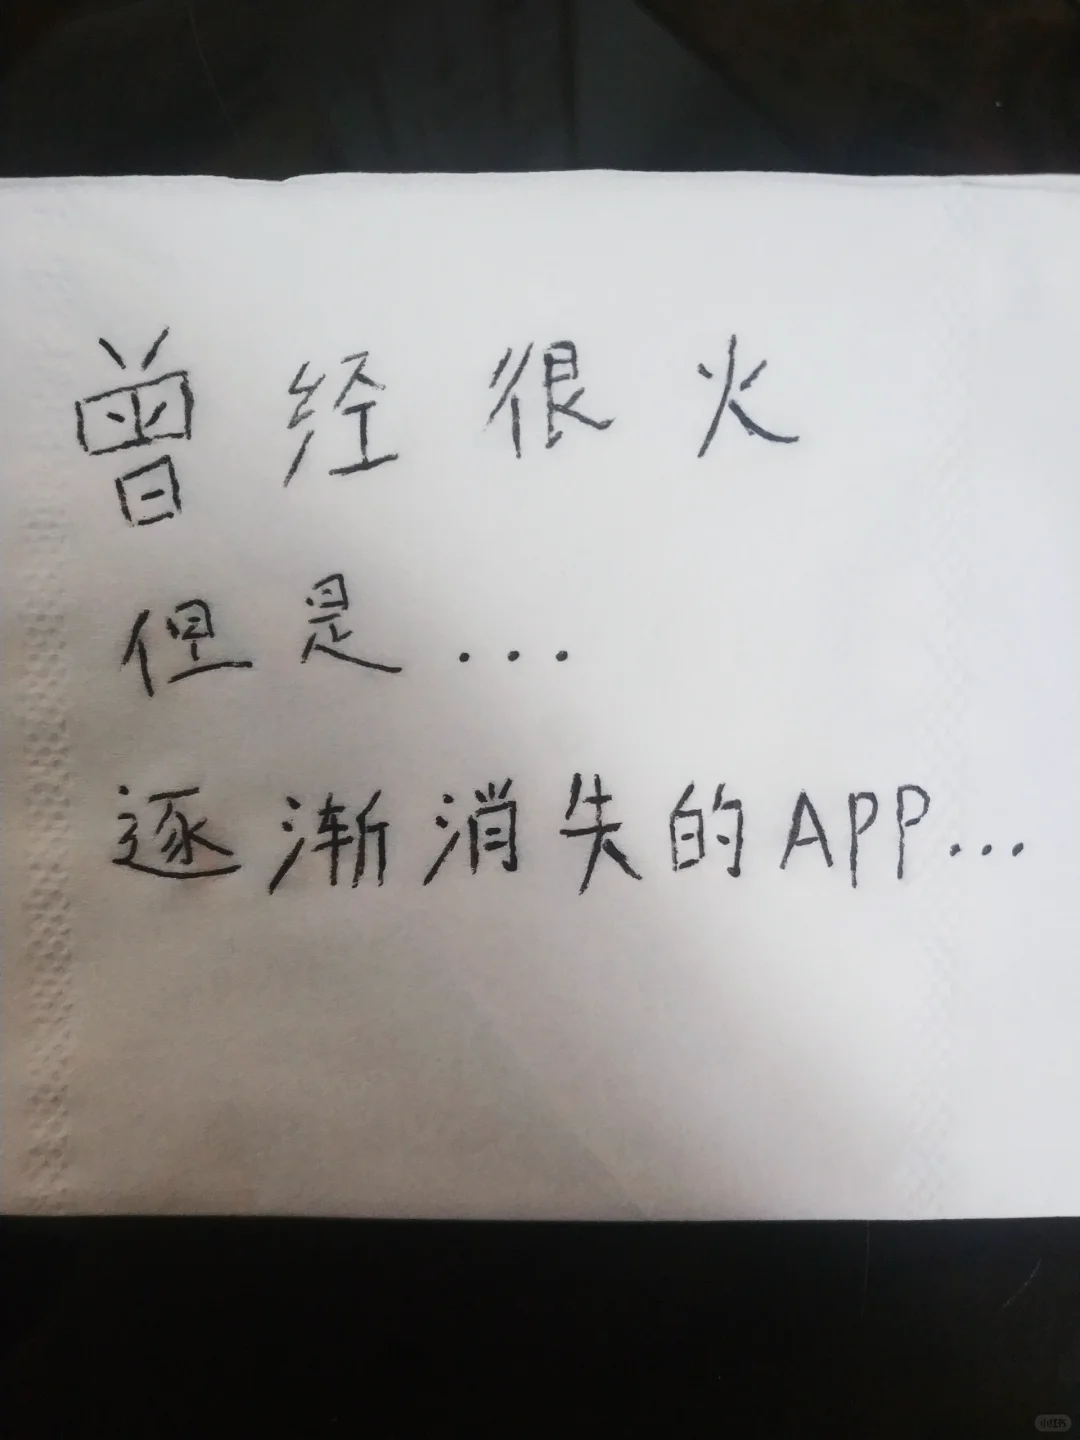 曾经很火
但是...
逐渐消失的APP...
小红书